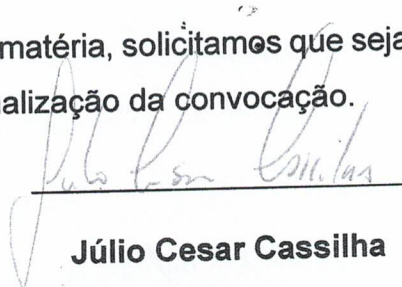 matéria, solicitamos que seja
alização da convocação.
Júlio Cesar Cassilha